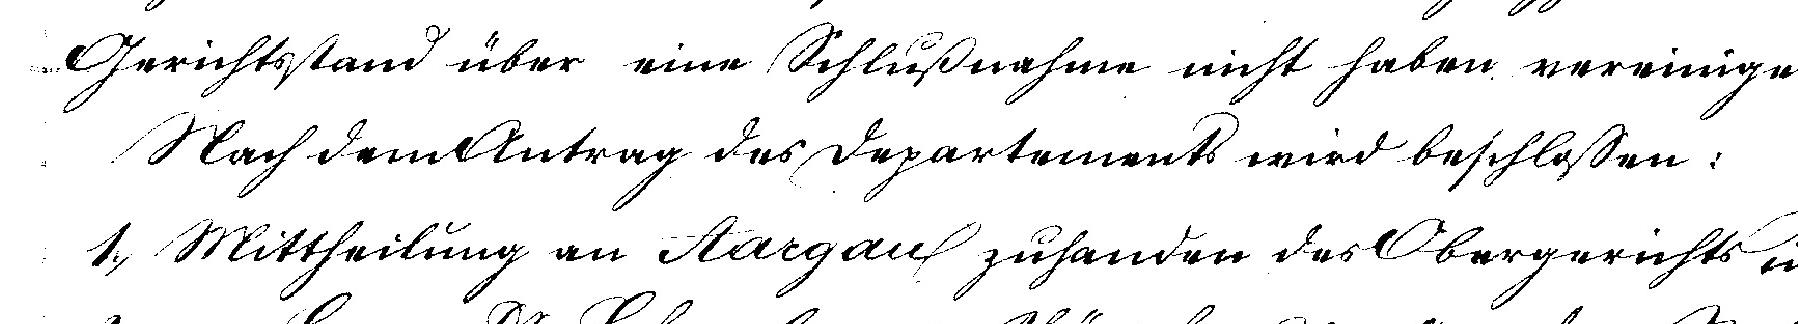 Gerichtsstand über eine Schlußnahme nicht haben vereinige
Nach dem Antrag des Departements wird beschlossen:
1., Mittheilung an Aargau zuhanden des Obergerichts